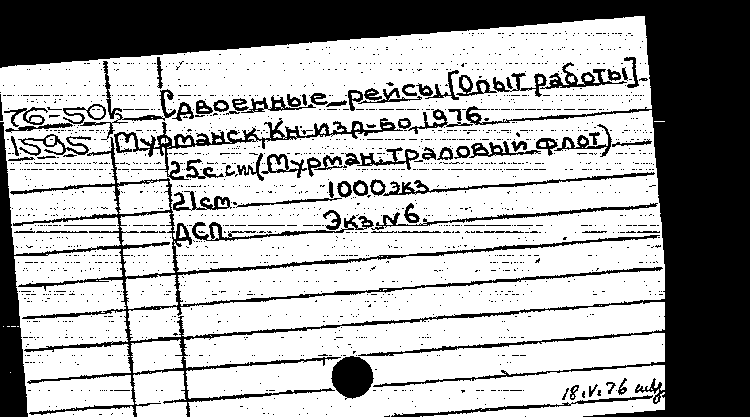 76-50к Сдвоенные рейсы. [Опыт работы].
1595 Мурманск, Кн. изд-во, 1976.
25с. (Мурман. траловый флот)
21см. 1000экз
ДСП. Экз.N6.
18.V.76